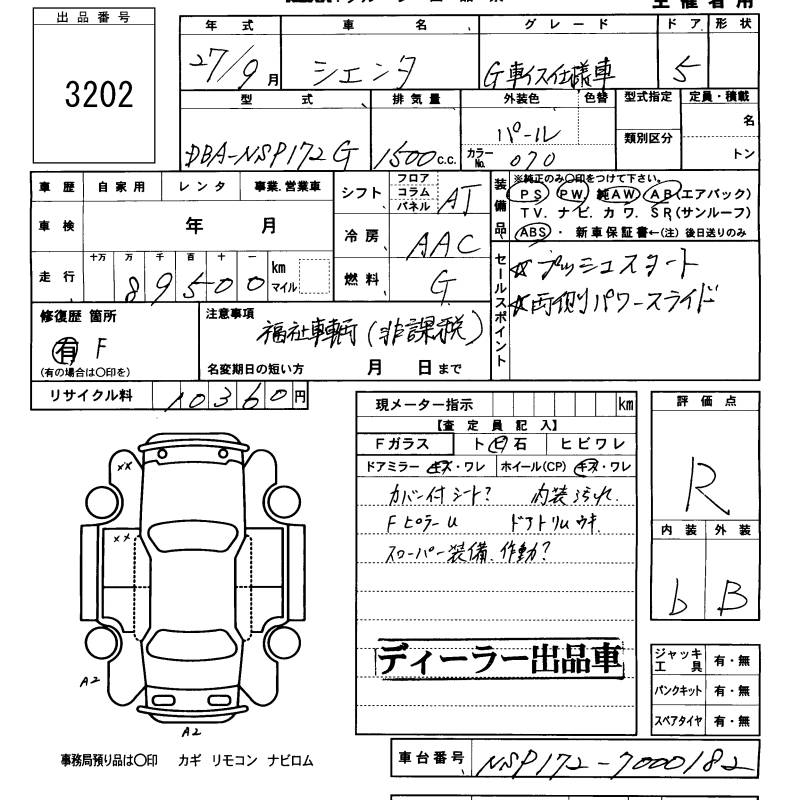 主催者用
出品番号
3202
年式 車名 グレード ドア 形状
27/9月 シエンタ G車イス仕様車 5
型式 排気量 外装色 色替 型式指定 定員・積載
DBA-NSP172G 1500c.c. パール 名
カラーNo. 070 類別区分 トン
車歴 自家用 レンタ 事業.営業車
車検 年 月
走行 十万 万 千 百 十 一
89500 km マイル
シフト フロア コラム パネル AT
冷房 AAC
燃料 G
装備品 ※純正のみ〇印をつけて下さい。
PS PW 純AW AB(エアバック)
TV. ナビ. カワ. SR(サンルーフ)
ABS ・ 新車保証書←(注) 後日送りのみ
セールスポイント
☆プッシュスタート
☆両側パワースライド
修復歴 箇所
有 F
(有の場合は〇印を)
注意事項
福祉車輌(非課税)
名変期日の短い方 月 日まで
リサイクル料 10360円
現メーター指示 km
【査定員記入】
Fガラス ト㊀石 ヒビワレ
ドアミラー キズ・ワレ ホイール(CP) キズ・ワレ
カバー付シート? 内装汚れ.
Fピラーu ドアトリムウキ.
スローパー装備.作動?
ディーラー出品車
評価点
R
内装 外装
b B
ジャッキ工具 有・無
パンクキット 有・無
スペアタイヤ 有・無
××
××
A2
A2
事務局預り品は〇印 カギ リモコン ナビロム
車台番号 NSP172-7000182